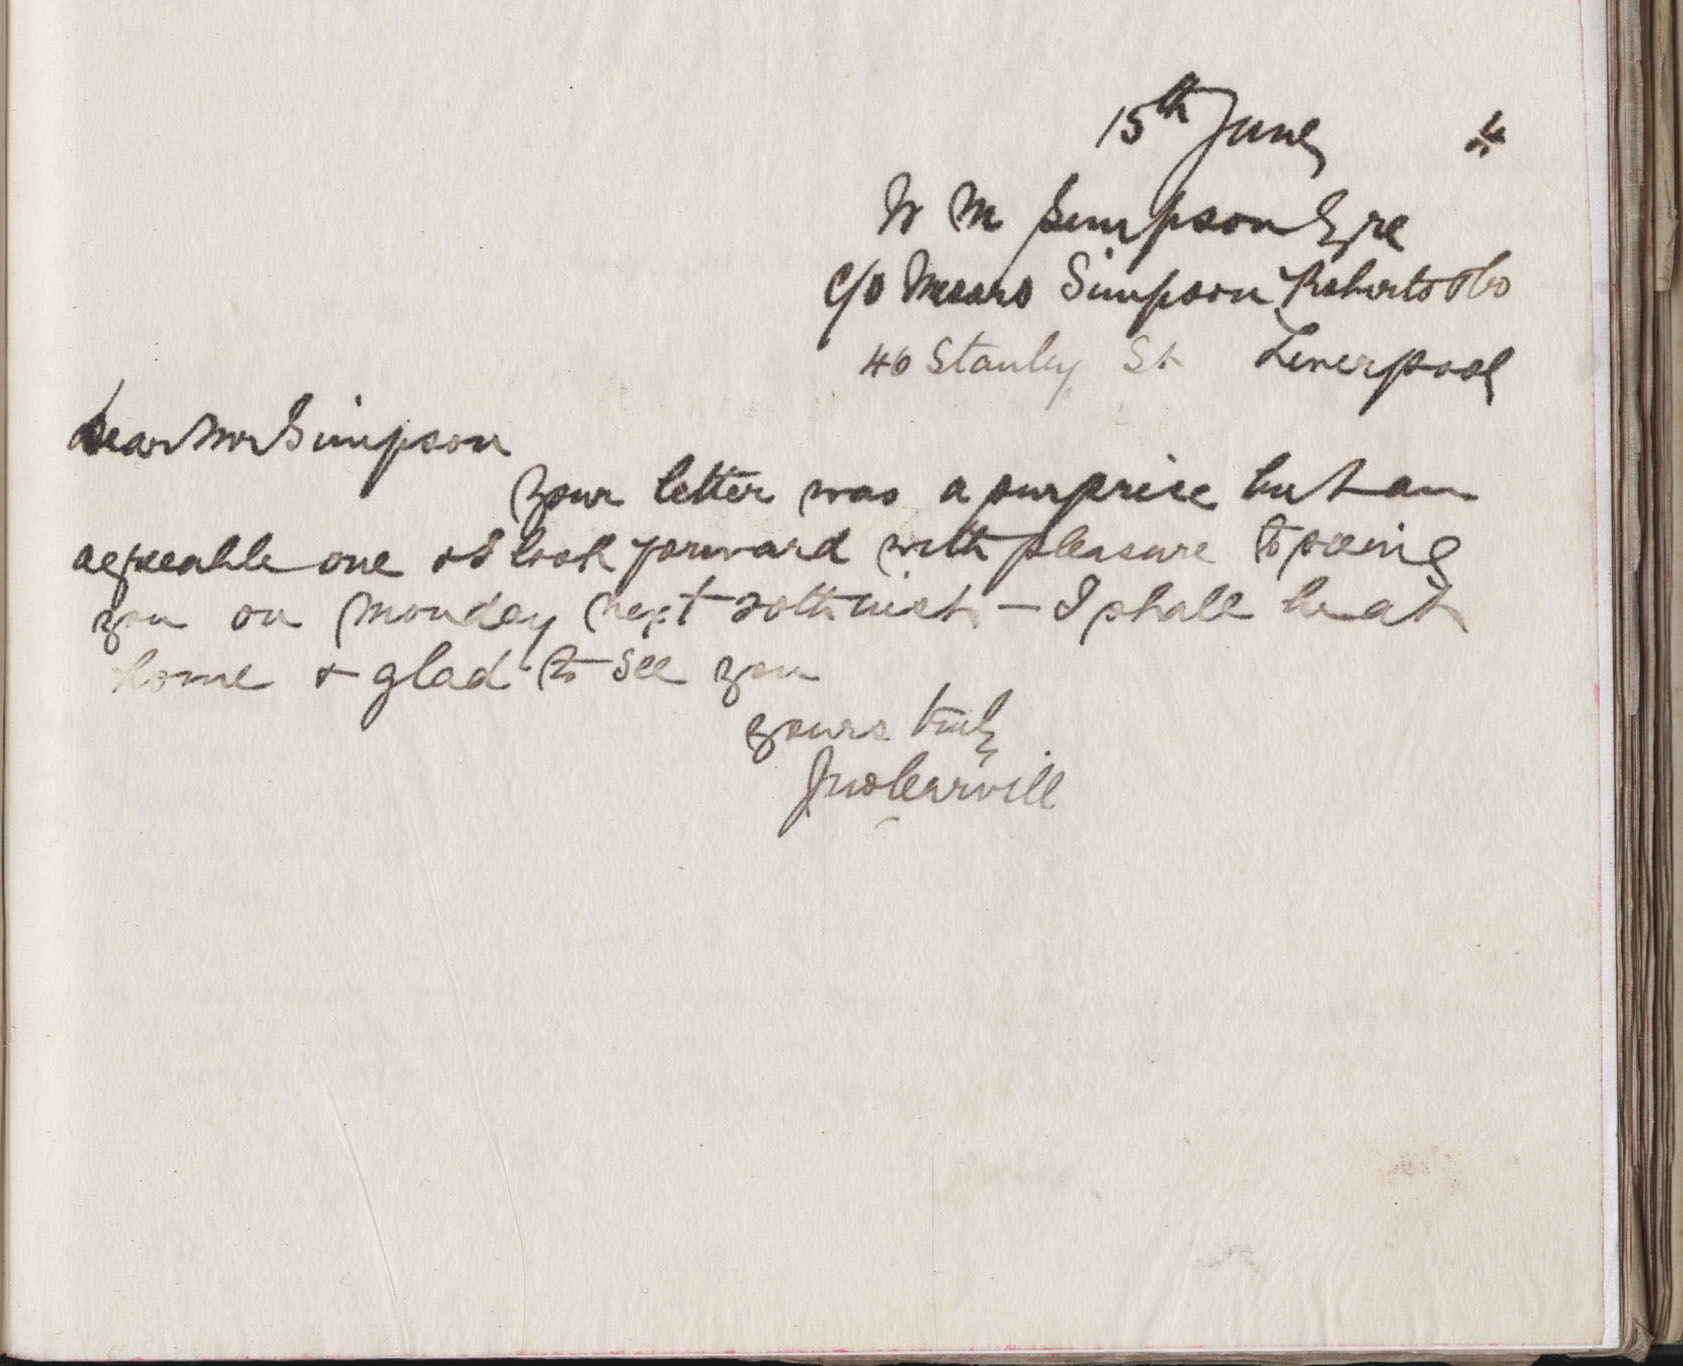 15th June 4
W M Simpson Esqre
C/o Messrs Simpson Roberts & Co
40 Stanley St Liverpool
Dear Mr Simpson
Your letter was a surprise but an
agreeable one & I look forward with pleasure to seeing
you on Monday next 20th inst - I shall be at
home & glad to see you
yours truly
Jno Carvill